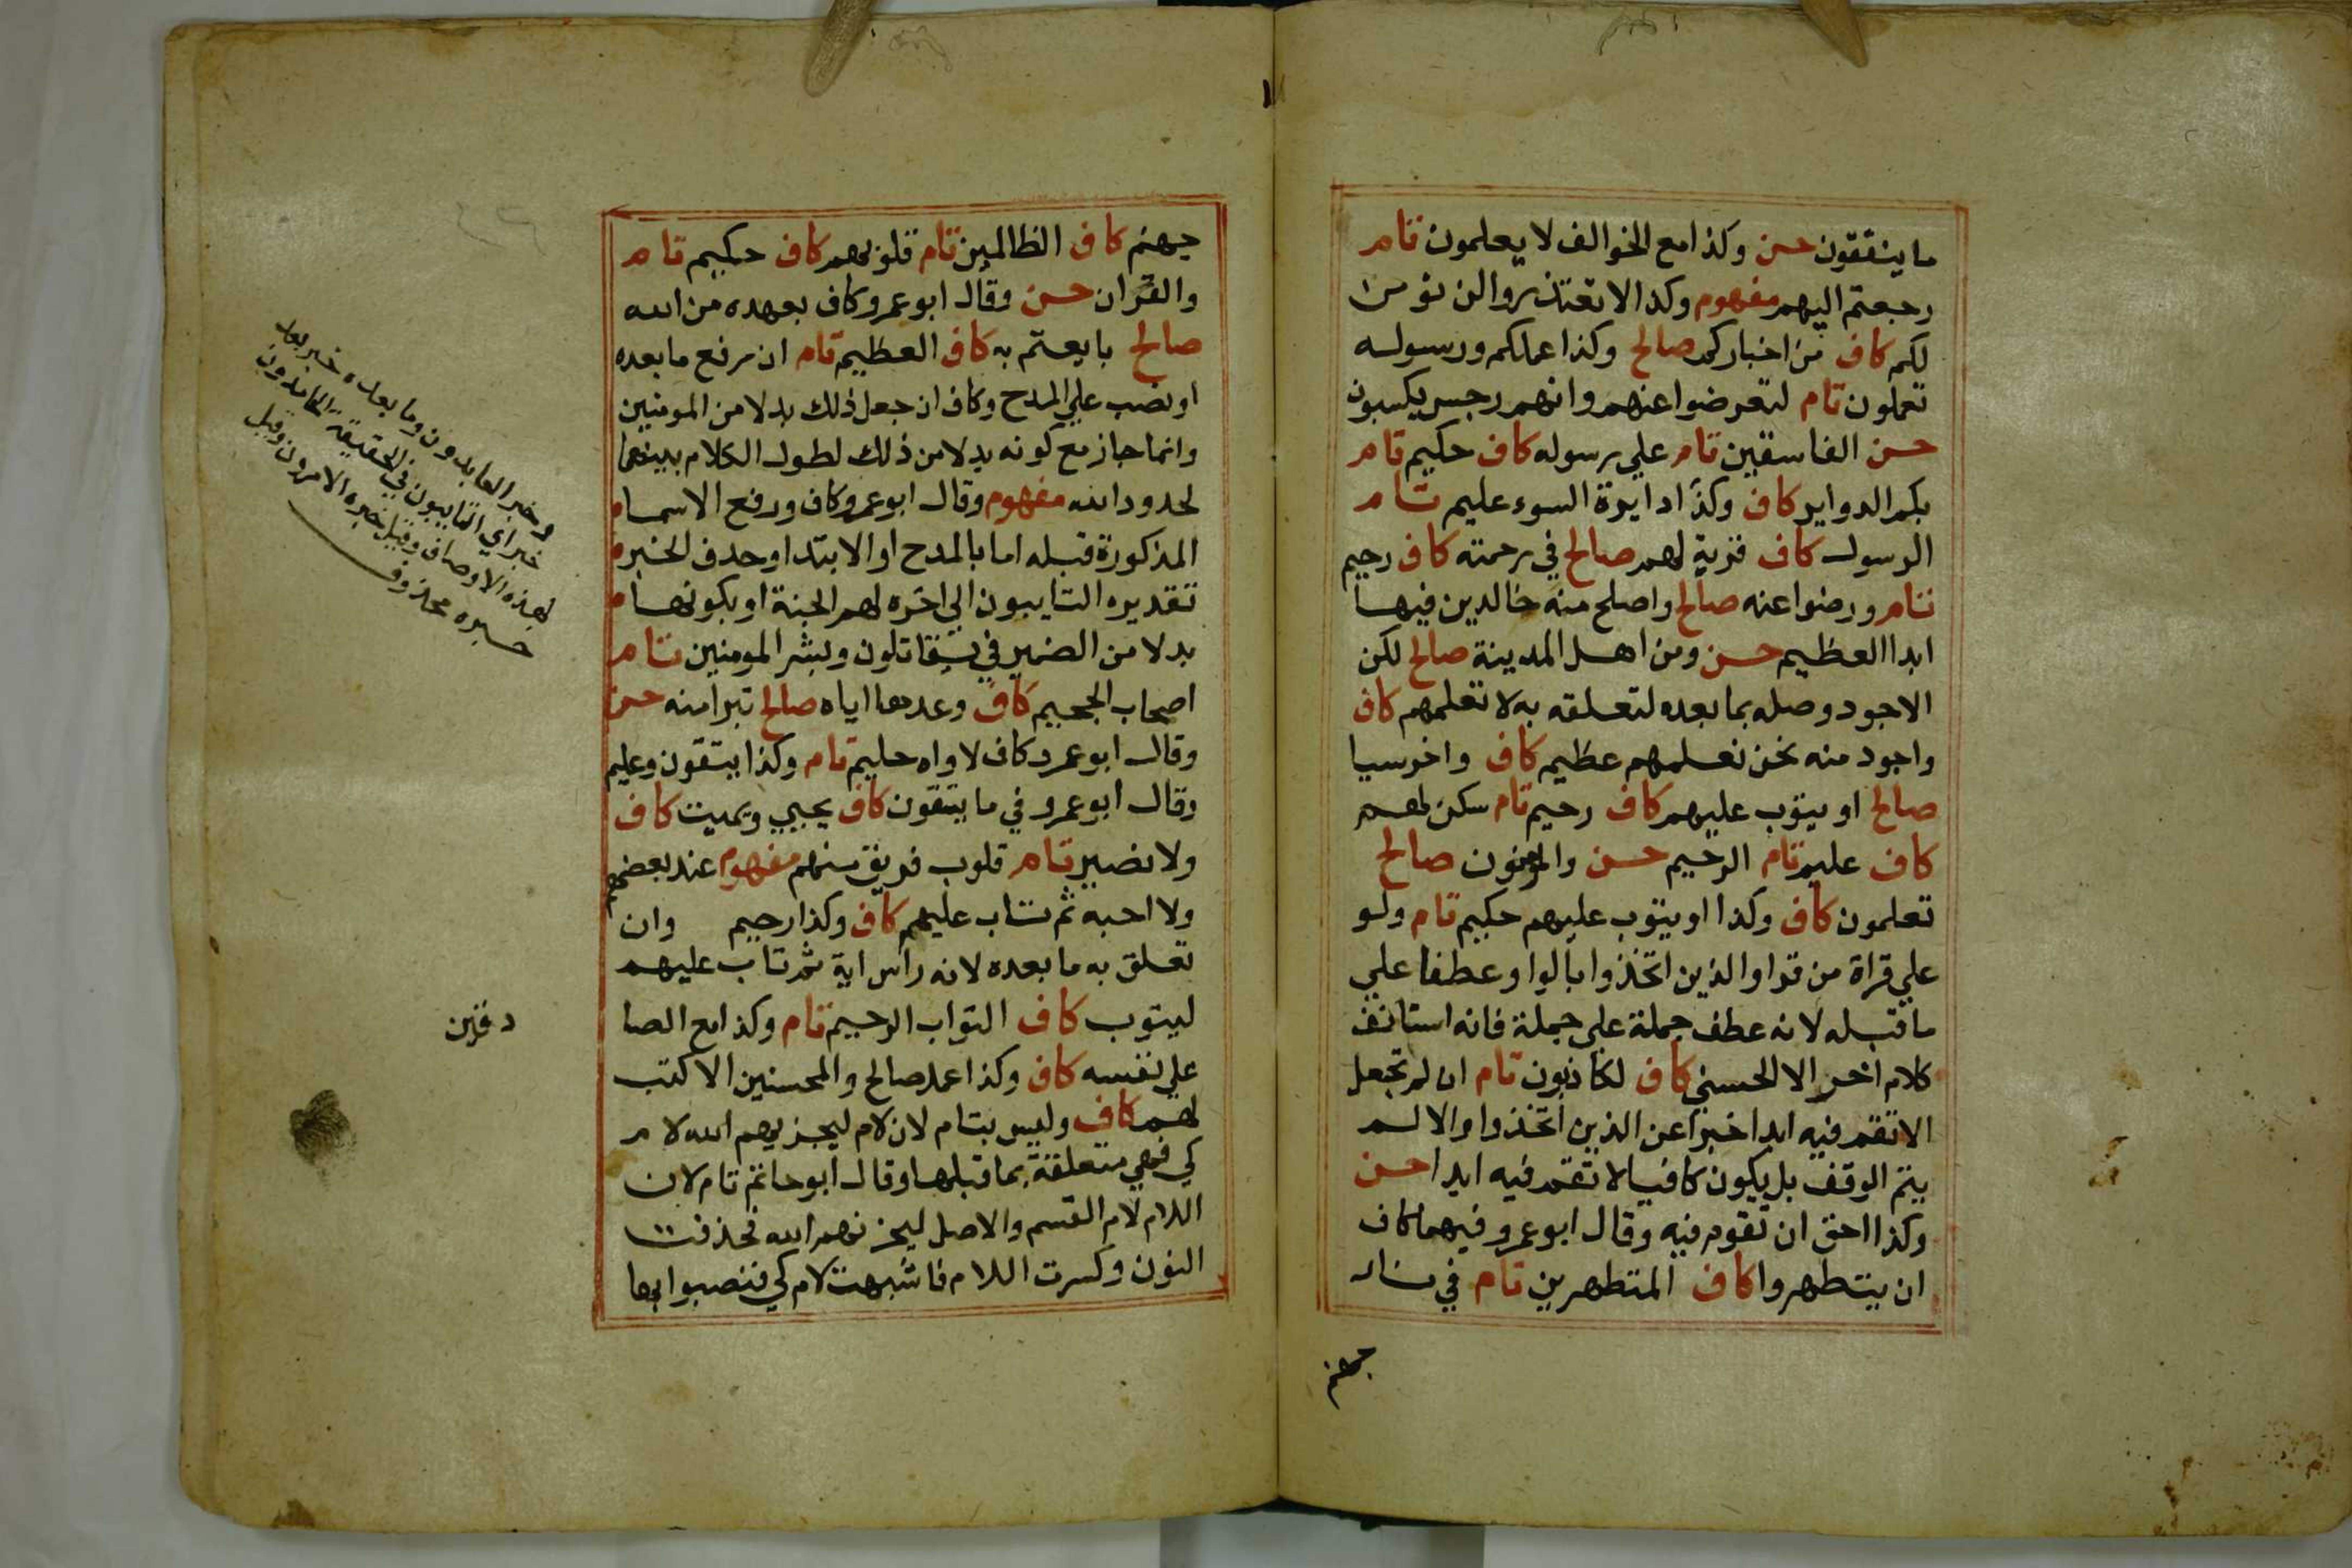 ما ينفقون حسن وكذا مع الخوالف لا يعلمون تام
رجعتم اليهم مفهوم وكذا لا تعتذروا لن نؤمن
لكم كاف من اخباركم صالح وكذا عملكم ورسوله
تعملون تام لتعرضوا عنهم وانهم رجس يكسبون
حسن الفاسقين تام علي رسوله كاف حكيم تام
بكم الدواير كاف وكذا دايرة السوء عليم تام
الرسول كاف قربة لهم صالح في رحمته كاف رحيم
تام ورضوا عنه صالح واصلح منه خالدين فيها
ابدا العظيم حسن ومن اهل المدينة صالح لكن
الاجود وصله بما بعده لتعلقه به لا تعلمهم كاف
واجود منه نحن نعلمهم عظيم كاف واخر سيا
صالح او يتوب عليهم كاف رحيم تام سكن لهم
كاف عليم تام الرحيم حسن والمومنون صالح
تعلمون كاف وكذا او يتوب عليهم حكيم تام ولو
علي قراة من قرا والذين اتخذوا بالواو عطفا علي
ما قبله لانه عطف جملة علي جملة فانه استانف
كلام اخر الا الحسني كاف لكاذبون تام ان لم تجعل
لا تقم فيه ابدا خبرا عن الذين اتخذوا والا لم
يتم الوقف بل يكون كافيا لا تقم فيه ابدا حسن
وكذا احق ان تقوم فيه وقال ابو عمرو فيهما كاف
ان يتطهروا كاف المتطهرين تام في نار
جهنم
جهنم كاف الظالمين تام قلوبهم كاف حكيم تام
والقران حسن وقال ابو عمرو كاف بعهده من الله
صالح بايعتم به كاف العظيم تام ان رفع ما بعده
او نصب علي المدح وكاف ان جعل ذلك بدلا من المومنين
وانما جاز مع كونه بدلا من ذلك لطول الكلام بينهما
لحدود الله مفهوم وقال ابو عمرو كاف ورفع الاسما
المذكورة قبله اما بالمدح او الابتدا وحذف الخبر
تقديره التايبون الي اخره لهم الجنة او بكونها
بدلا من الضمير في يقاتلون وبشر المومنين تام
اصحاب الجحيم كاف وعدها اياه صالح تبرا منه حسن
وقال ابو عمرو كاف لاواه حليم تام وكذا يتقون وعليم
وقال ابو عمرو في ما يتقون كاف يحيي ويميت كاف
ولا نصير تام قلوب فريق منهم مفهوم عند بعضهم
ولا احبه ثم تاب عليهم كاف وكذا رحيم وان
تعلق به ما بعده لانه راس اية ثم تاب عليهم
ليتوب كاف التواب الرحيم تام وكذا مع الصا
دقين
علي نفسه كاف وكذا عمل صالح والمحسنين الا كتب
لهم كاف وليس بتام لان لام ليجزيهم الله لام
كي فهي متعلقة بما قبلها وقال ابو حاتم تام لان
اللام لام القسم والاصل ليجزنهم الله فحذفت
النون وكسرت اللام فاشبهت لام كي فنصبوا بها
وخبر العابدون وما بعده خبر بعد
خبر اي التايبون في الحقيقة الحامدون
لهذه الاوصاف وقيل خبره الامرون وقيل
خبره محذوف